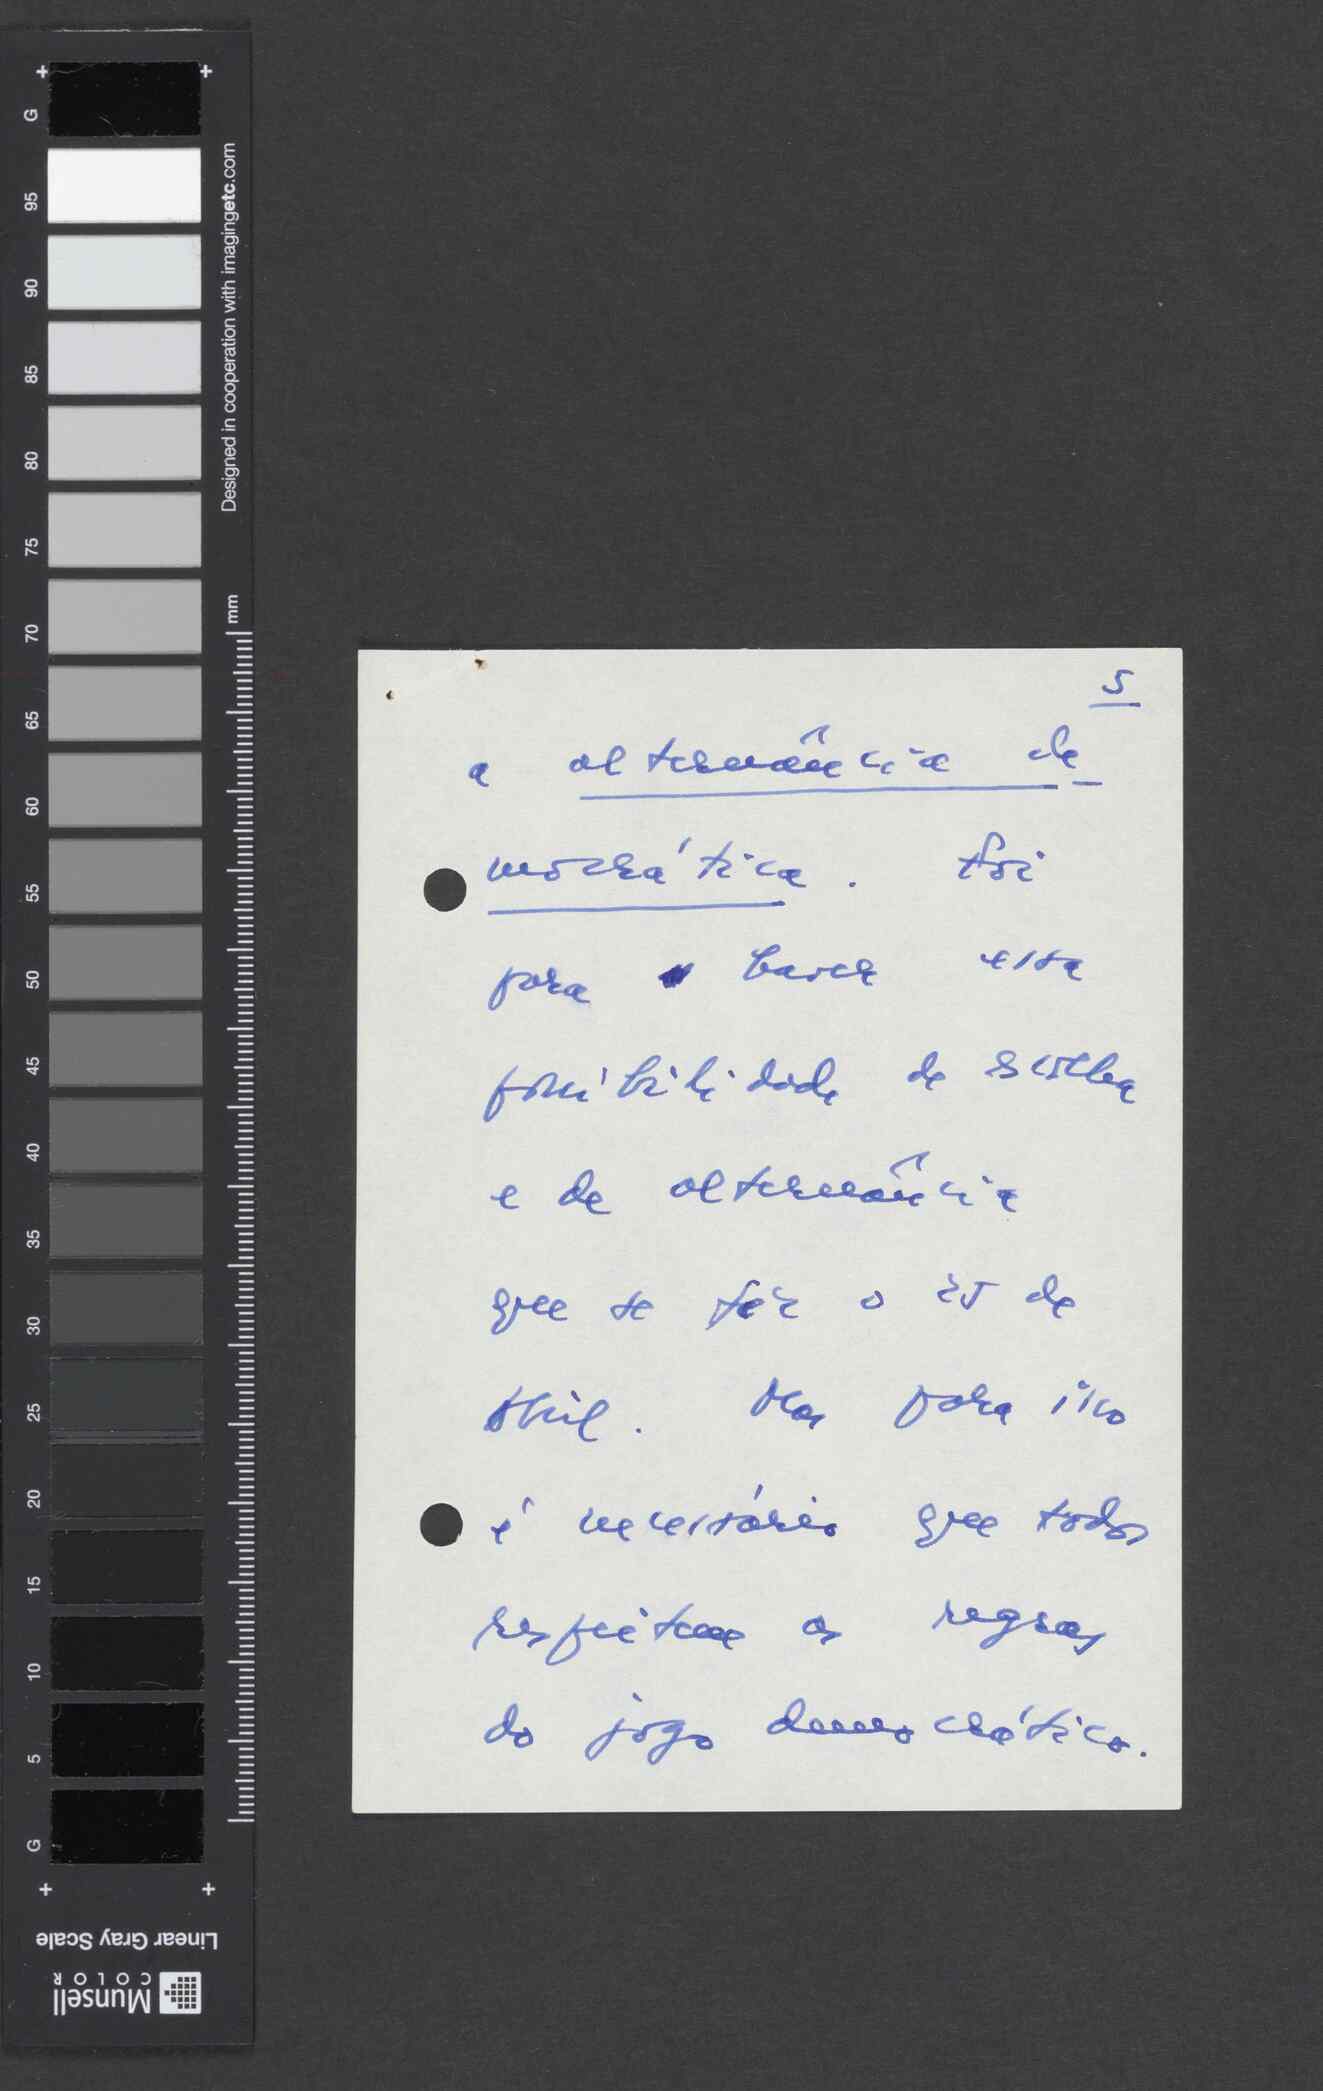 5
a alternância de-
mocrática. Foi
para haver esta
possibilidade de escolha
e de alternância
que se fêz o 25 de
Abril. Mas para isso
é necessário que todos
respeitem as regras
do jogo democrático.
G
95
90
85
80
75
70
65
60
55
50
45
40
35
30
25
20
15
10
5
G
Designed in cooperation with imagingetc.com
mm
Linear Gray Scale
Munsell
COLOR